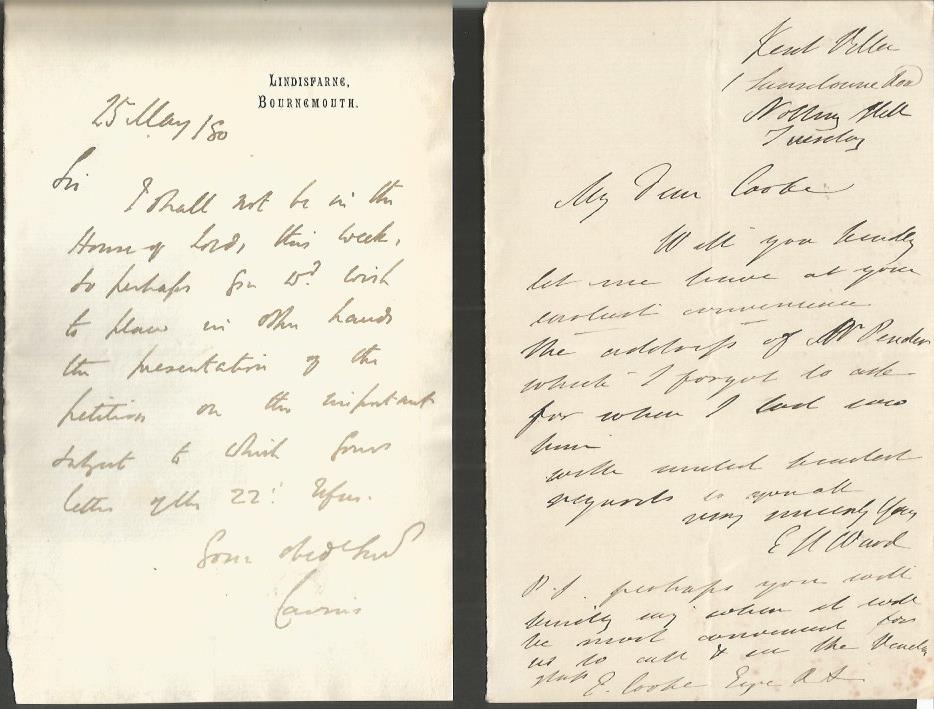 LINDISFARNE,
BOURNEMOUTH.
25 May /80
Sir
I shall not be in the
House of Lords this week,
so perhaps you wd. wish
to place in other hands
the presentation of the
petition on the important
subject to which your
letter of the 22d. refers.
Your obedt Servt
Cairns
Kent Villa
Lansdowne Road
Notting Hill
Tuesday
My Dear Cooke
Will you kindly
let me have at your
earliest convenience
the address of Mr Pender
which I forgot to ask
for when I last saw
him
with united kindest
regards to you all
very sincerely Yours
E M Ward
P.S. perhaps you will
kindly say when it will
be most convenient for
us to call & see the
glass
E. Cooke Esqre RA